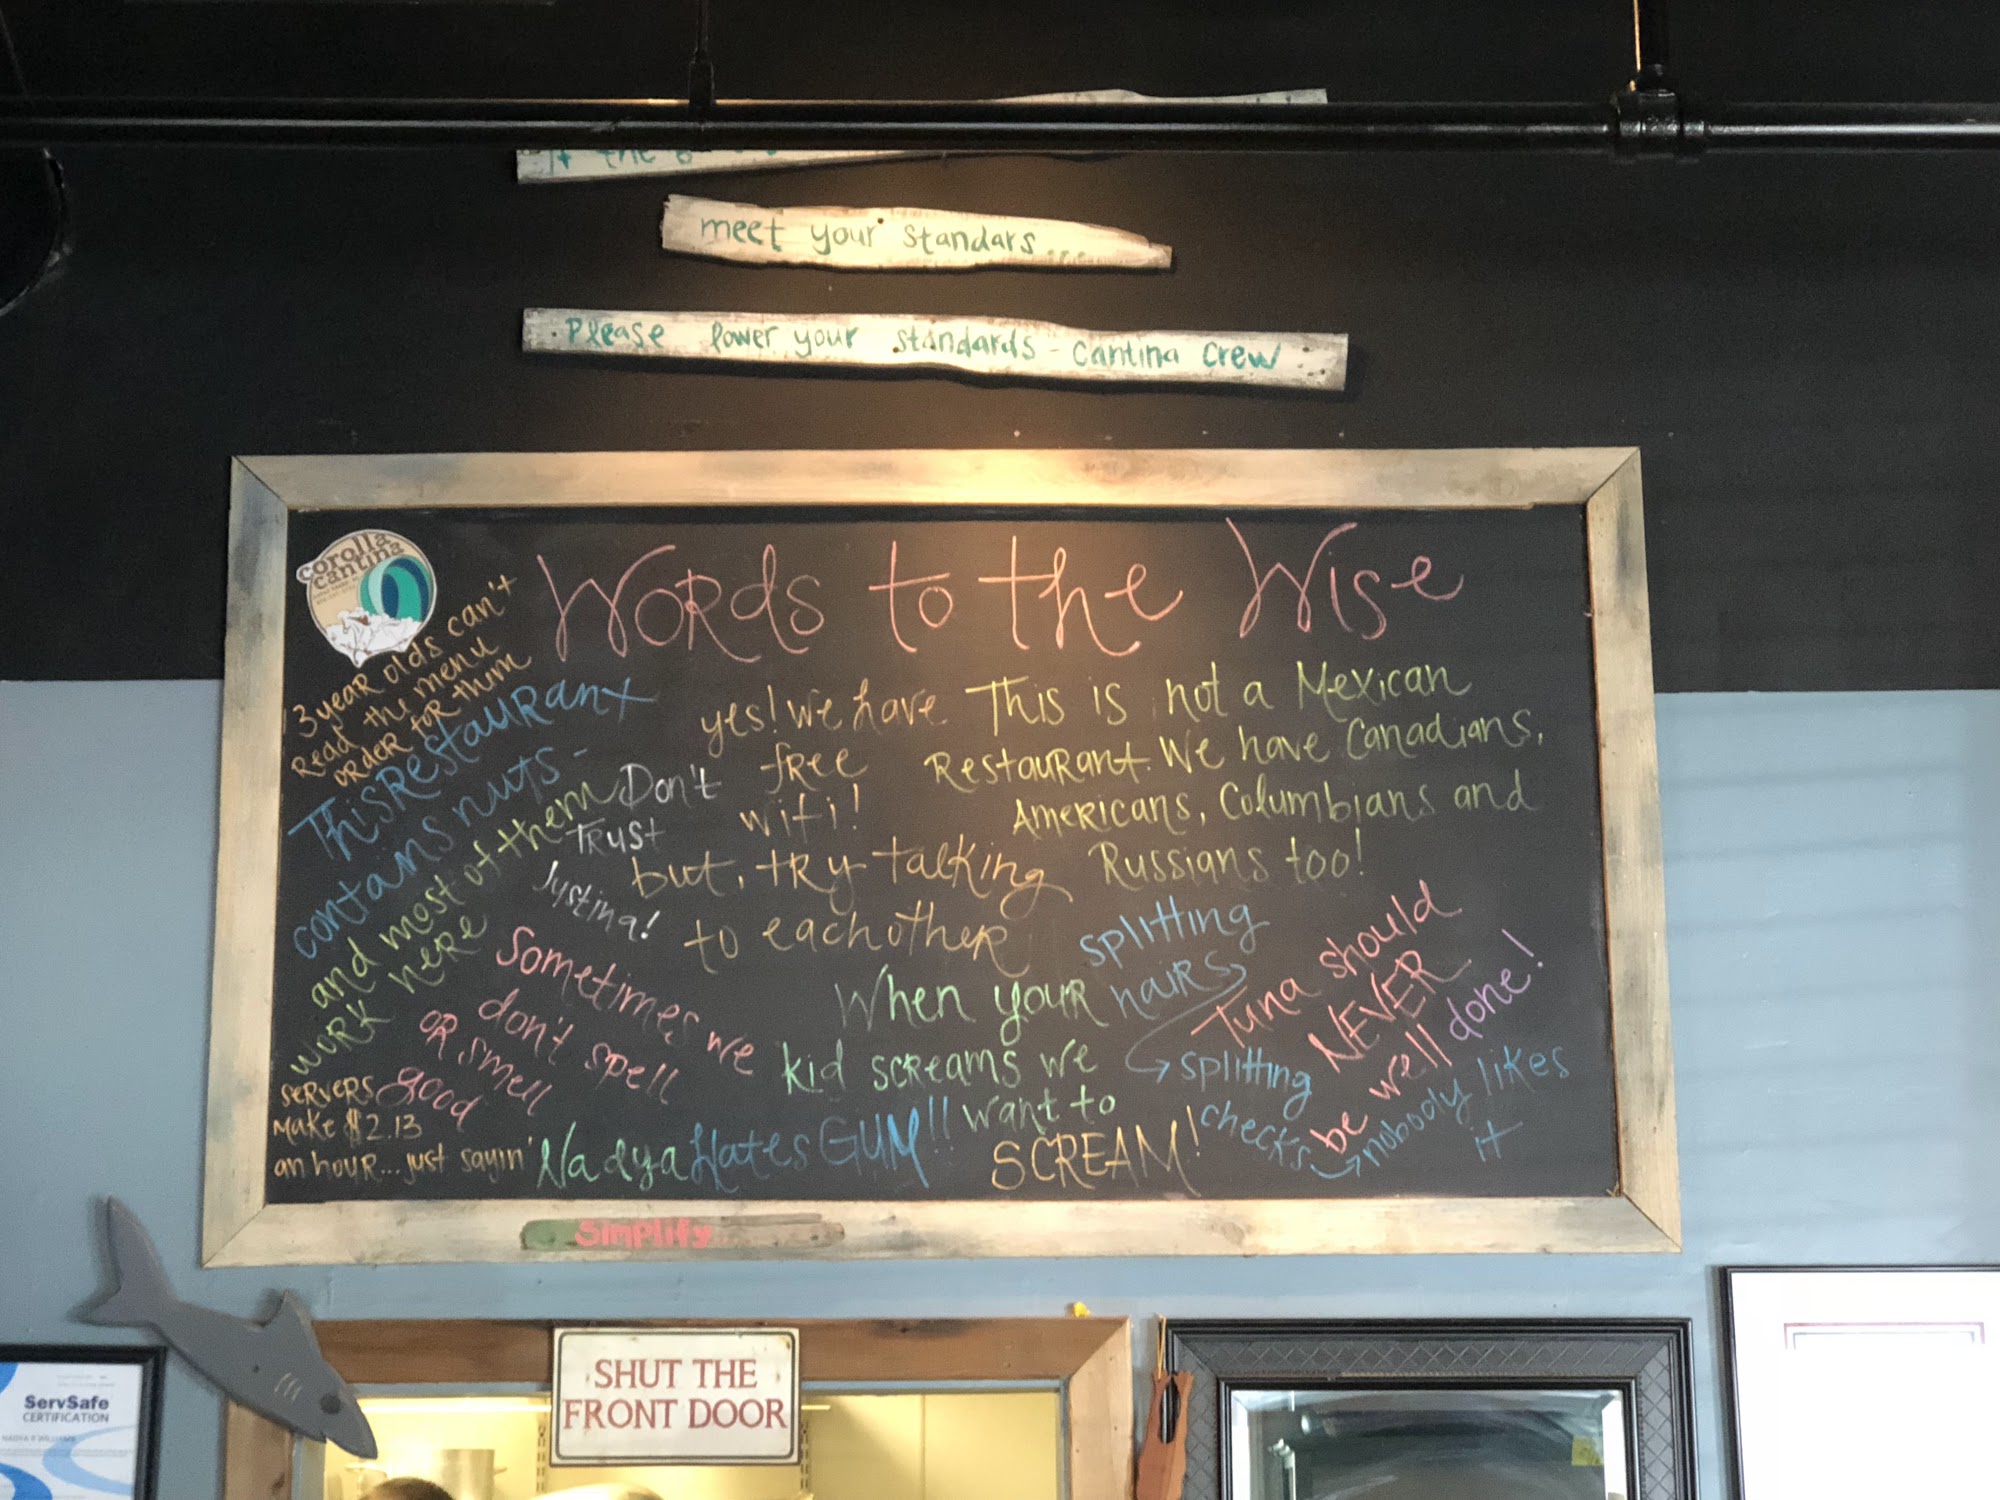 If the
meet your standars....
Please lower your standards - Cantina Crew
corolla
cantina
Words to the Wise
3 year olds can't
Read the menu
order for them
This Restaurant
contains nuts -
and most of them
work here
Don't
Trust
Jystina!
yes! we have
free
wifi!
but, try talking
to each other
This is not a Mexican
Restaurant. We have Canadians,
Americans, Columbians and
Russians too!
Sometimes we
don't spell
or smell
good
servers
make $2.13
an hour... just sayin'
Nadya Hates GUM!!
When your
kid screams we
want to
SCREAM!
splitting
hairs
splitting
checks
nobody likes
it
Tuna should
NEVER
be well done!
Simplify
SHUT THE
FRONT DOOR
ServSafe
CERTIFICATION